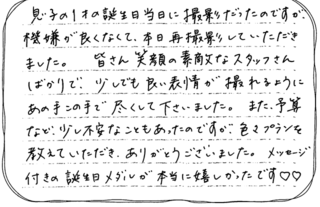 息子の1才の誕生日当日に撮影だったのですが、
機嫌が良くなくて、本日再撮影していただき
ました。 皆さん笑顔の素敵なスタッフさん
ばかりで、少しでも良い表情が撮れるように
あの手この手で尽くして下さいました。また、予算
など、少し不安なこともあったのですが、色々プランを
教えていただき、ありがとうございました。メッセージ
付きの誕生日メダルが本当に嬉しかったです♡♡